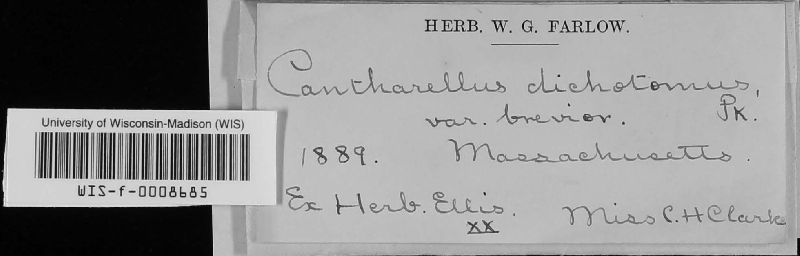 HERB. W. G. FARLOW.
Cantharellus dichotomus,
var. brevior. Pk.
1889. Massachusetts.
Ex Herb. Ellis. Miss C. H Clarke
xx
University of Wisconsin-Madison (WIS)
WIS-f-0008685